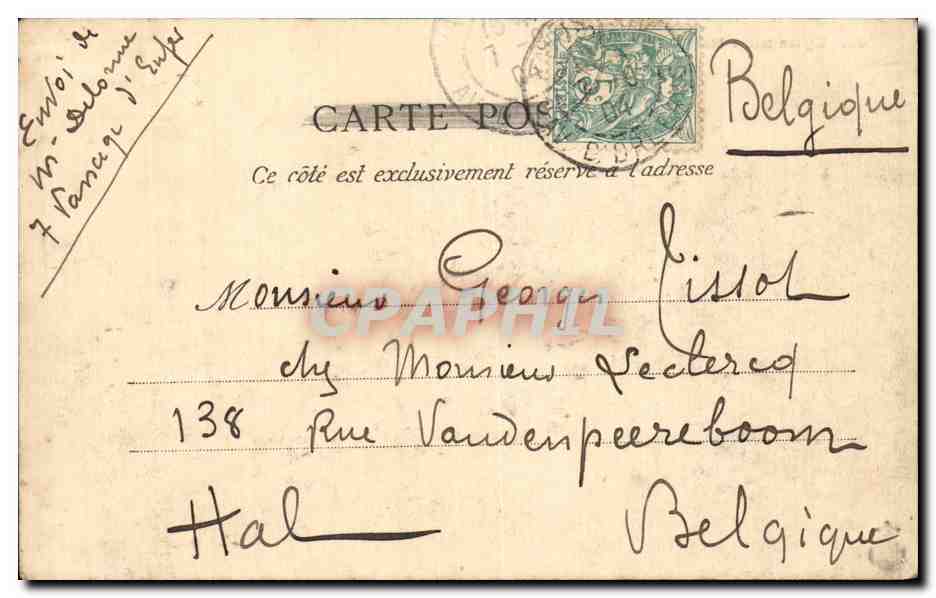 Envoi de
M. Delorme
7 Passage d'Enfer
CARTE POS
Belgique
Ce côté est exclusivement réservé à l'adresse
Monsieur Georges Tissot
CPAPHIL
chez Monsieur Leclercq
138 Rue Vandenpeereboom
Hal Belgique